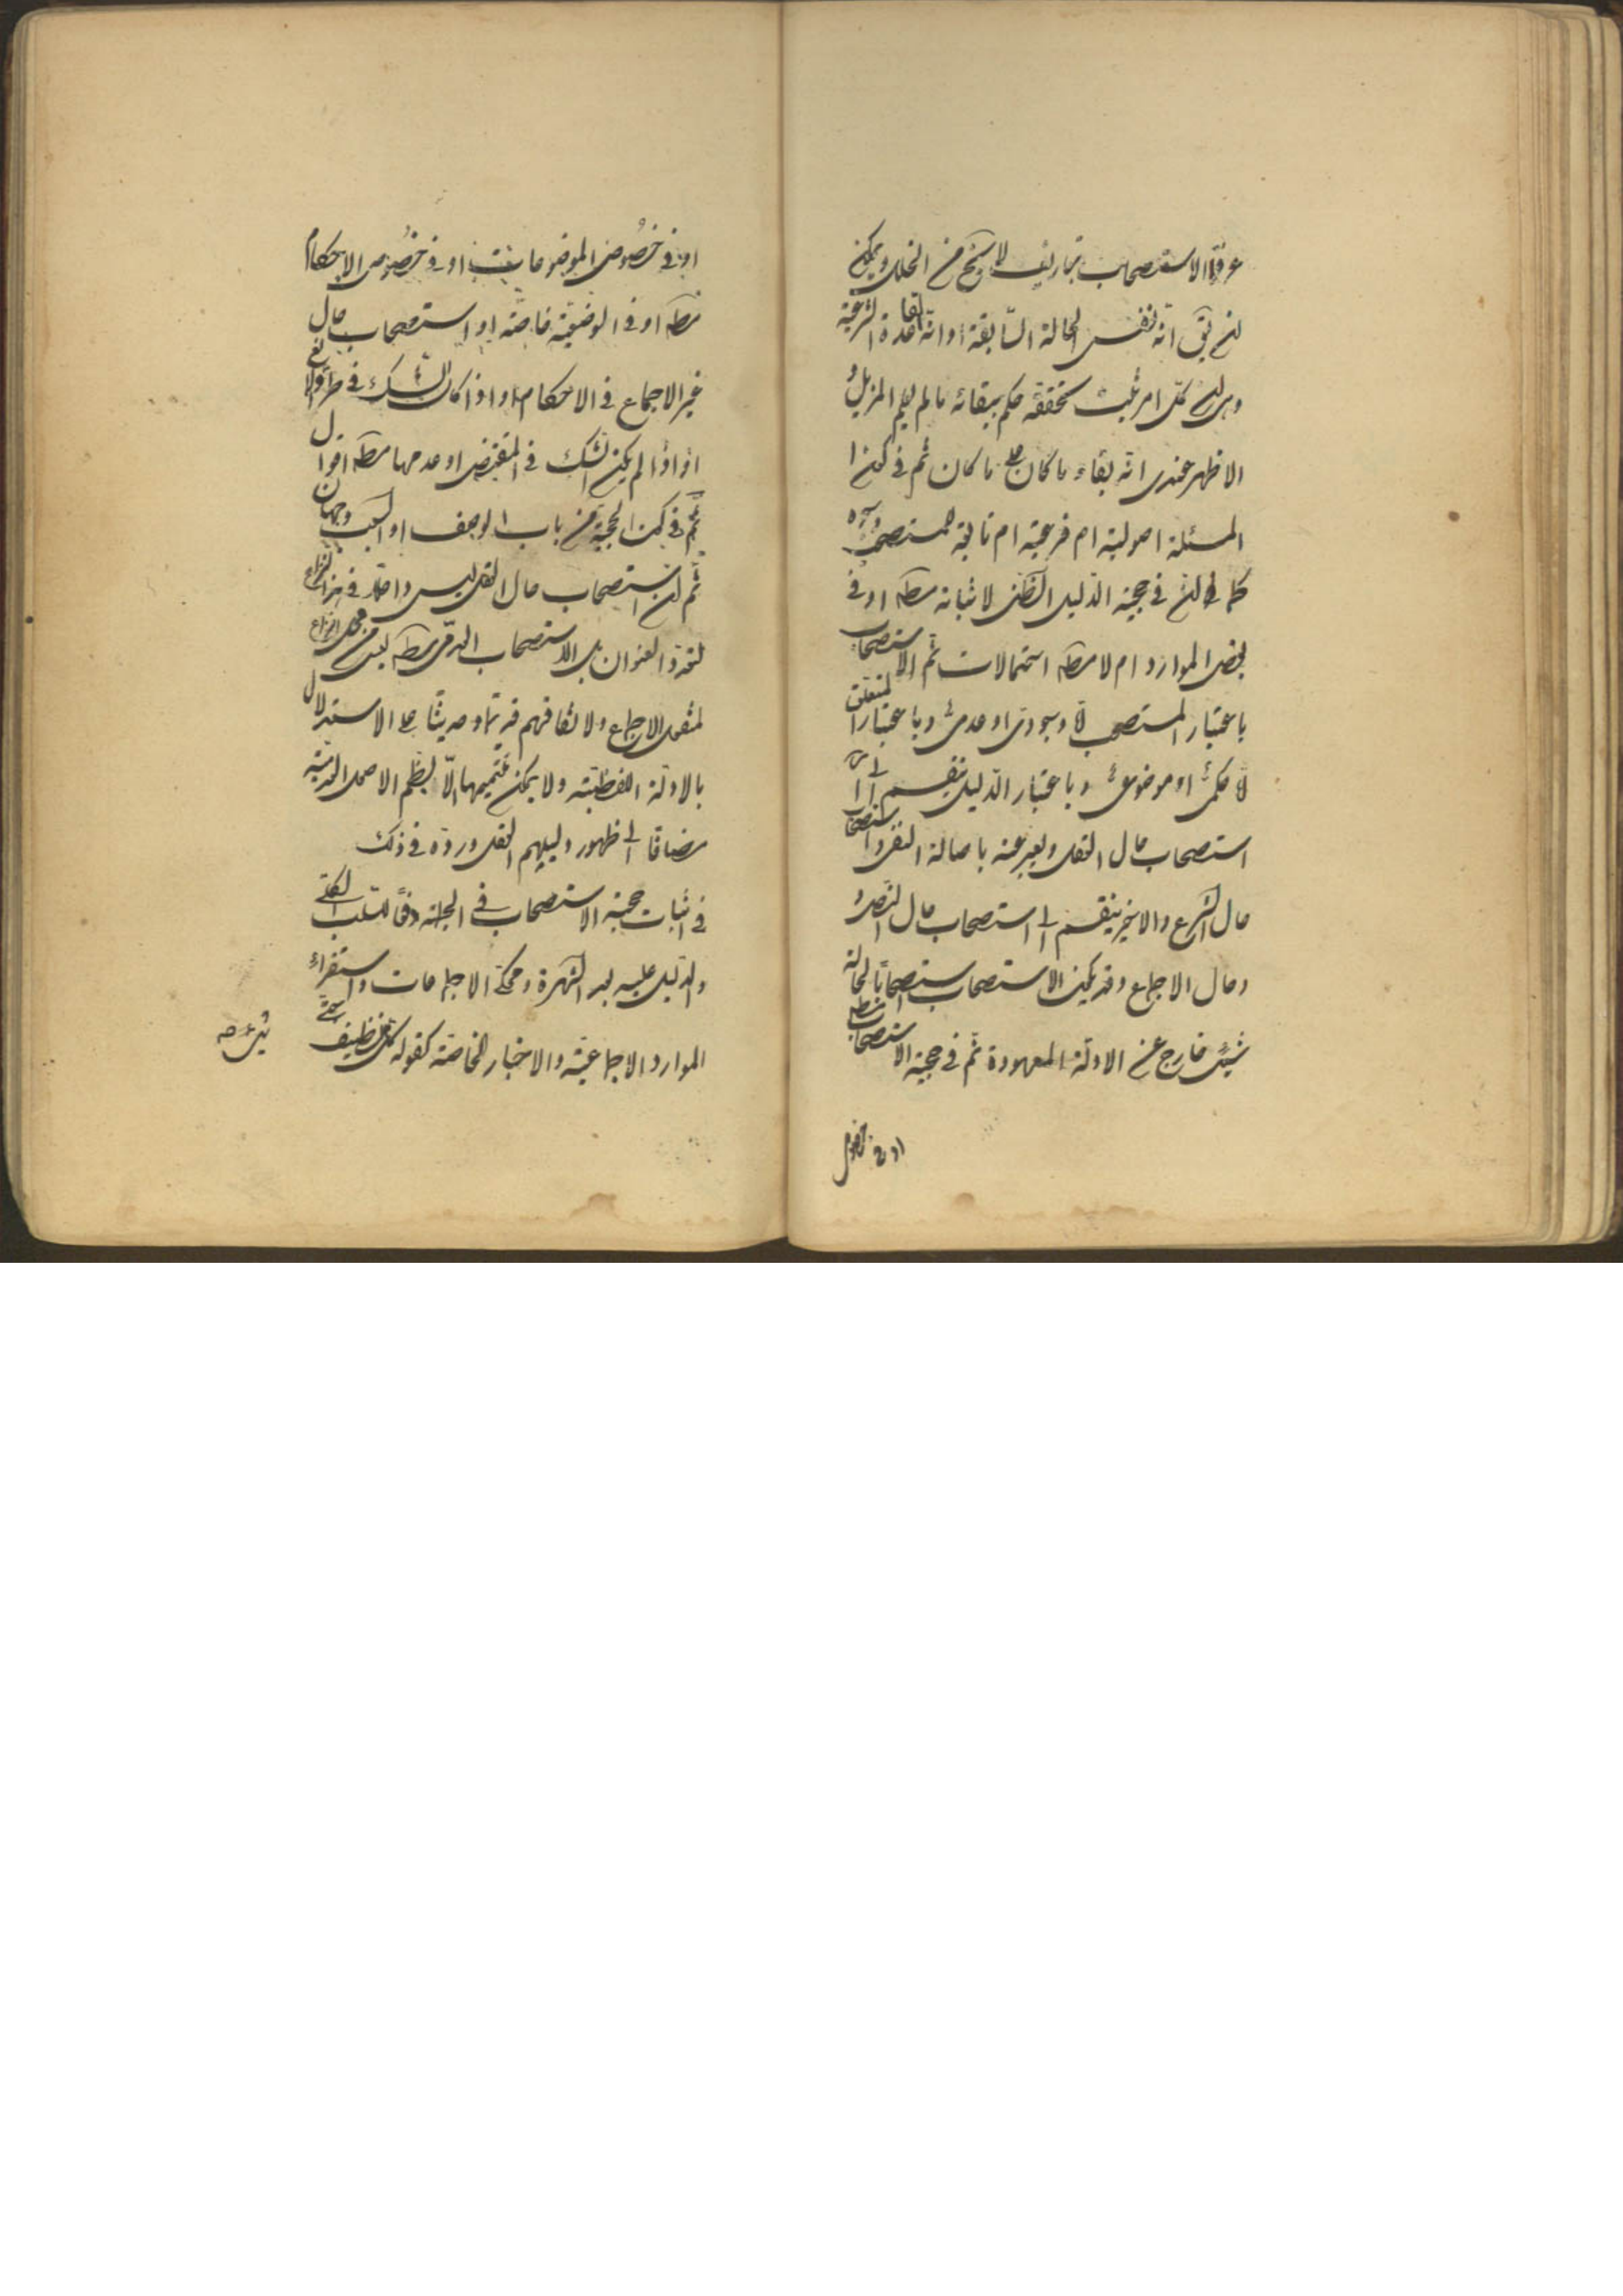 عرفوا الاستصحاب بتعاريف لا تخ من الخلل ويمكن
ان يق انه نفس الحالة السابقة او انه القاعدة الشرعية
وهى ان كل امر ثبت تحققه حكم ببقائه ما لم يعلم المزيل و
الاظهر عندى انه بقاء ما كان على ما كان ثم فى كون
المسئلة اصولية ام فرعية ام تابعة للمستصحب
كما ان فى حجية الدليل الظنى لاثباته مطه او فى
بعض الموارد ام لا مطه احتمالات ثم الاستصحاب
باعتبار المستصحب اما وجودى او عدمى وباعتبار المتعلق
اما حكمى او موضوعى وباعتبار الدليل ينقسم الى
استصحاب حال العقل ويعبر عنه باصالة النفى واستصحاب
حال الشرع والاخير ينقسم الى استصحاب حال النص و
وحال الاجماع وقد يكون الاستصحاب استصحابا لحالة
شىء خارج عن الادلة المعهودة ثم فى حجية الاستصحاب مطه
او فى خصوص
او فى خصوص الموضوعات او فى خصوص الاحكام
مطه او فى الوضعية خاصة او استصحاب حال
غير الاجماع فى الاحكام او اذا كان الشك فى طرو الرافع
او اذا لم يكن الشك فى المقتضى او عدمها مطه اقوال
ثم فى كون الحجية من باب الوصف او السبب وجهان
ثم ان استصحاب حال العقل ليس داخلا فى هذا النزاع
العنوان بل الاستصحاب العدمى مطه ليس من محل النزاع
لنقل الاجماع ولاتفاقهم قديما وحديثا على الاستدلال
بالادلة اللفظية ولا يمكن تتميمها الا بضم الاصل العدمية
مضافا الى ظهور دليلهم العقل وروده فى ذلك
فى اثبات حجية الاستصحاب فى الجملة وفاقا للسلب الكلى
والدليل عليه بعد الشهرة ومحكى الاجماعات واستقراء
الموارد الاجماعية والاخبار الخاصة كقوله كل شىء نظيف حتى